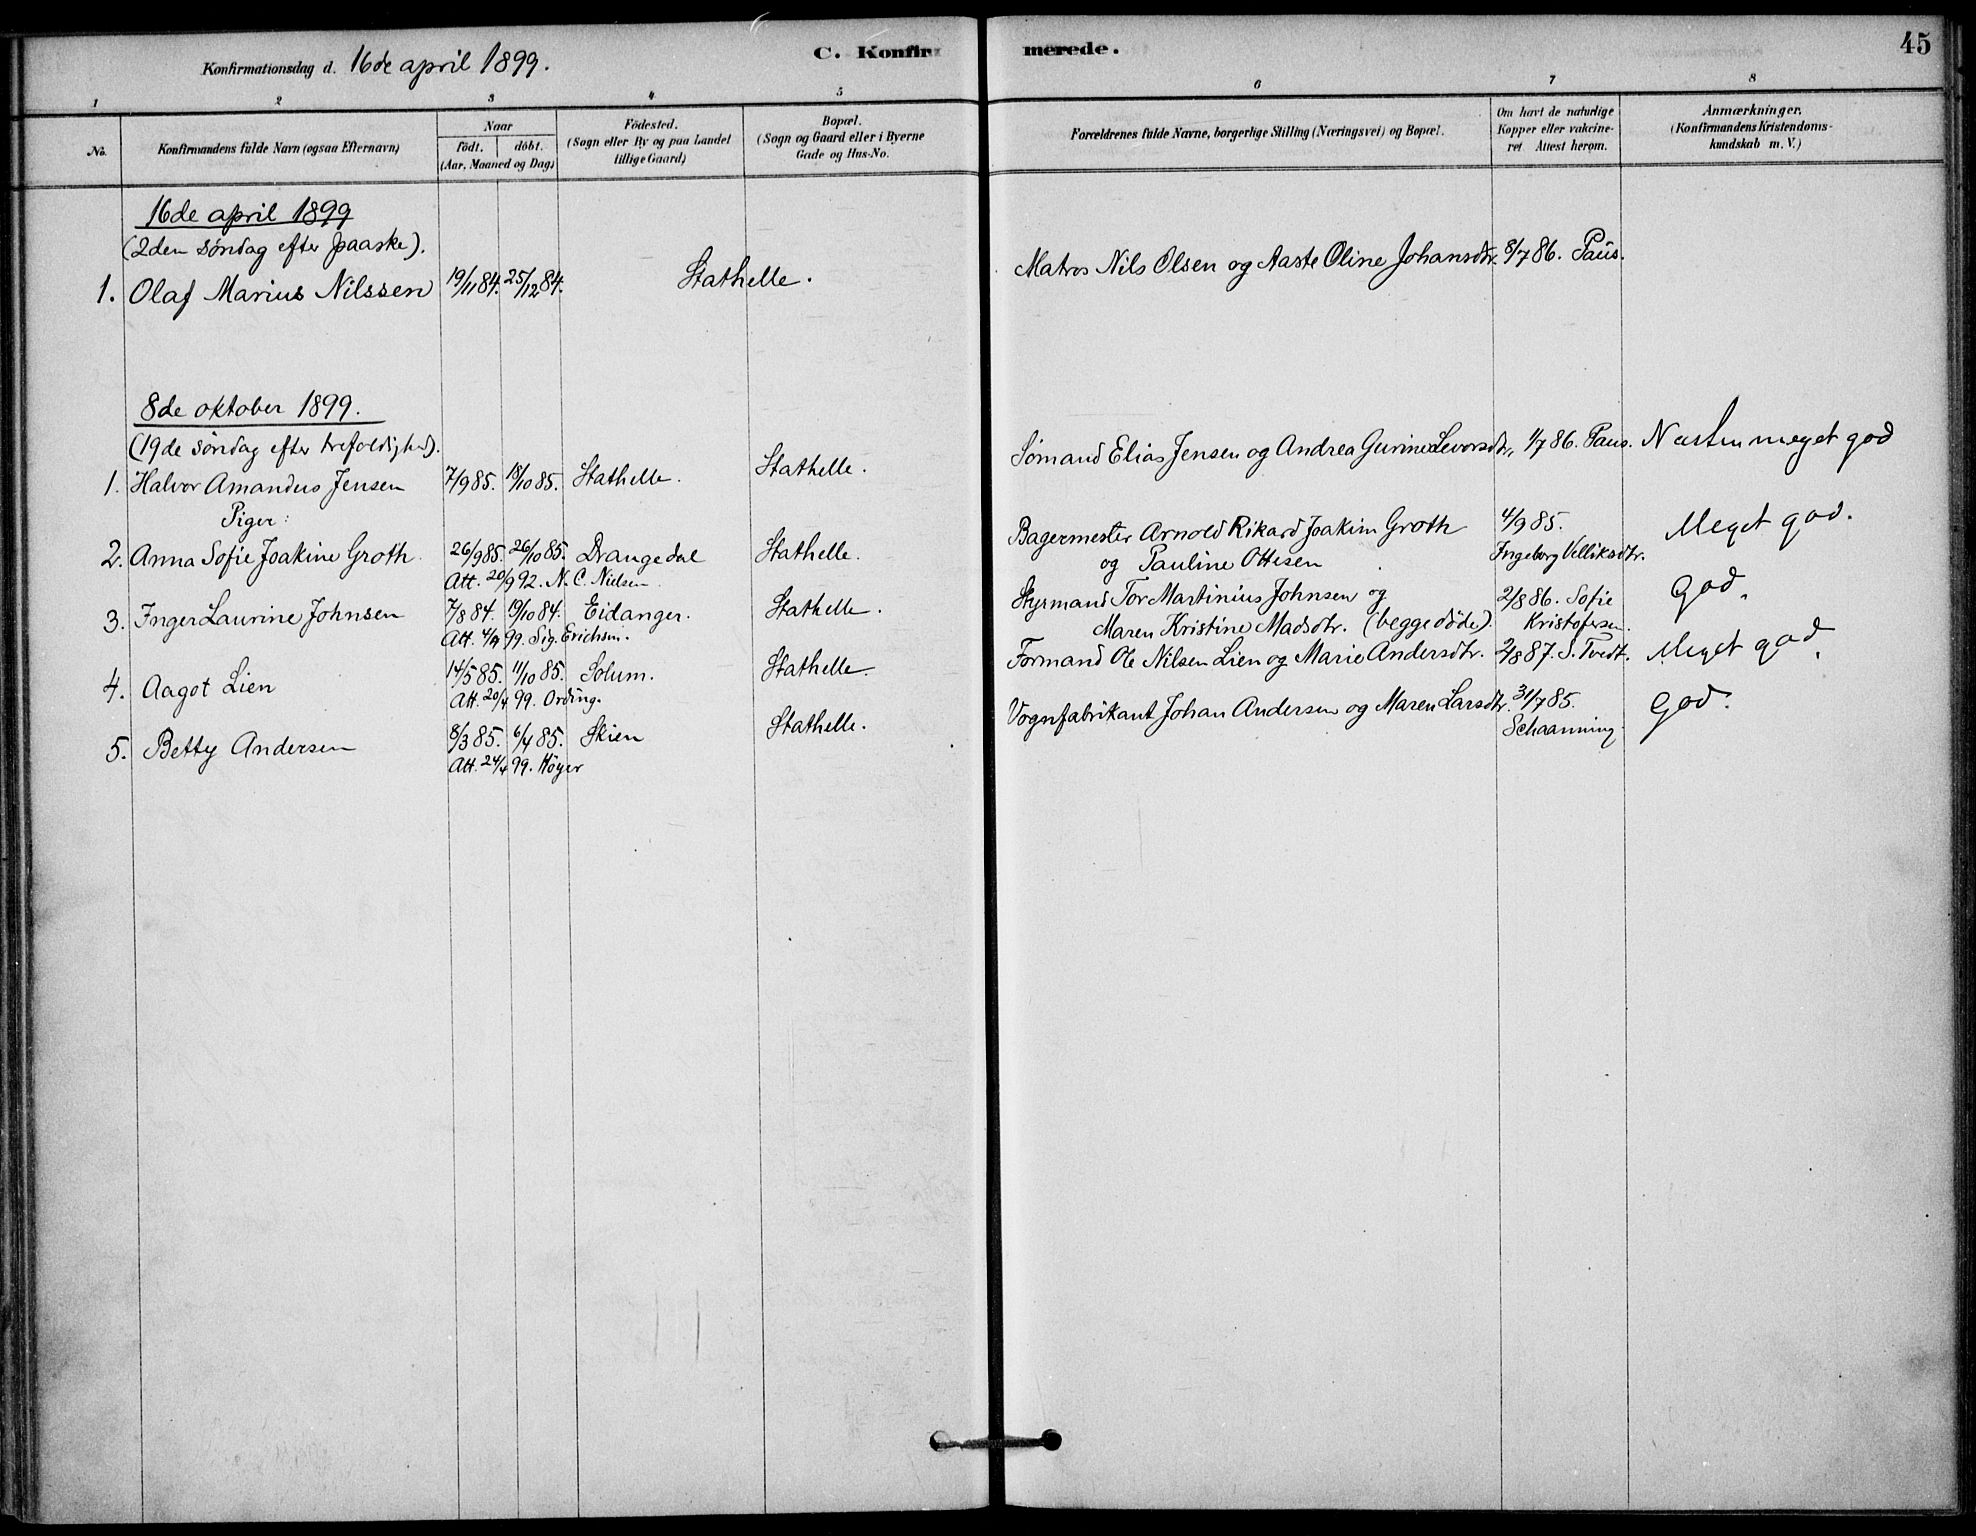 Konfirmationsdag d. 16de april 1899.
C. Konfirmerede.
45
1 2 3 4 5 6 7 8
No.
Konfirmandens fulde Navn (ogsaa Efternavn)
Naar
födt. döbt.
(Aar, Maaned og Dag)
Födested.
(Sogn eller By og paa Landet
tillige Gaard)
Bopæl.
(Sogn og Gaard eller i Byerne
Gade og Hus-No.
Forældrenes fulde Navne, borgerlige Stilling (Næringsvei) og Bopæl.
Om havt de naturlige
Kopper eller vakcine-
ret Attest herom.
Anmærkninger.
(Konfirmandens Kristendoms-
kundskab m. V.)
16de april 1899
(2den søndag efter paaske).
1. Olaf Marius Nilssen 19/11 84. 25/12 84. Stathelle. Matros Nils Olsen og Aaste Oline Johansdtr. 8/7 86. Paus.
8de oktober 1899.
(19de søndag efter trefoldighed).
1. Halvor Amandus Jensen 7/9 85. 18/10 85. Stathelle. Stathelle. Sømand Elias Jensen og Andrea Gurine Levorsdtr. 1/7 86. Paus. Næsten meget god
Piger:
2. Anna Sofie Joakine Groth. 26/9 85. 26/10 85. Drangedal Stathelle. Bagermester Arnold Rikard Joakim Groth 4/9 85. Meget god.
Att. 20/9 92. N. C. Nielsen. og Pauline Ottesen Ingeborg Velliksdtr.
3. Inger Laurine Johnsen 7/8 84. 19/10 84. Eidanger. Stathelle. Styrmand Tor Martinius Johnsen og 2/8 86. Sofie God.
Att. 4/4 99. Sig. Erichsen. Maren Kristine Madsdtr. (begge døde). Kristofersen.
4. Aagot Lien 14/5 85. 11/10 85. Solum. Stathelle. Formand Ole Nilsen Lien og Marie Andersdtr. 2/8 87. S. Tvedt. Meget god.
Att. 20/4 99. Ording.
5. Betty Andersen 8/3 85. 6/4 85. Skien Stathelle. Vognfabrikant Johan Andersen og Maren Larsdtr. 31/7 85. God.
Att. 24/4 99. Höyer Schaanning.